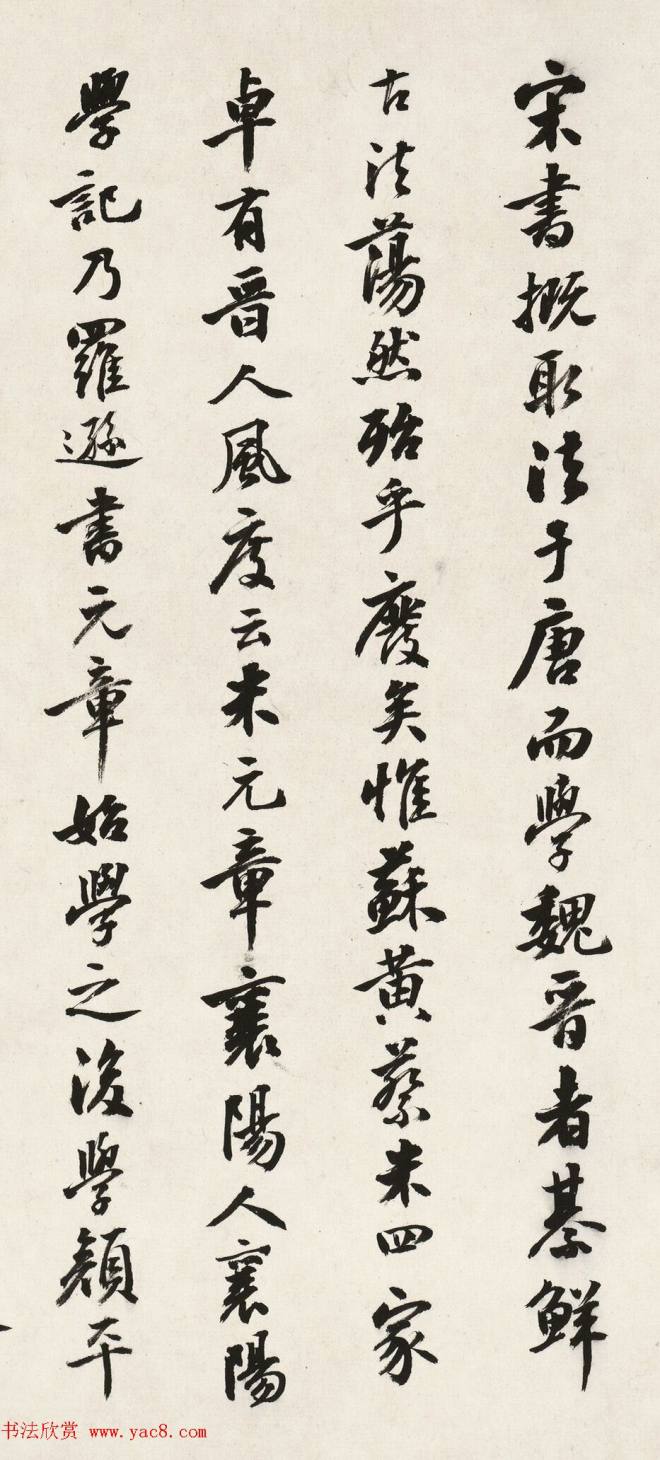 宋書概取法于唐而學魏晉者綦鮮
古法蕩然殆乎廢矣惟蘇黃蔡米四家
卓有晉人風度云米元章襄陽人襄陽
學記乃羅遜書元章始學之後學顏平
书法欣赏 www.yac8.com